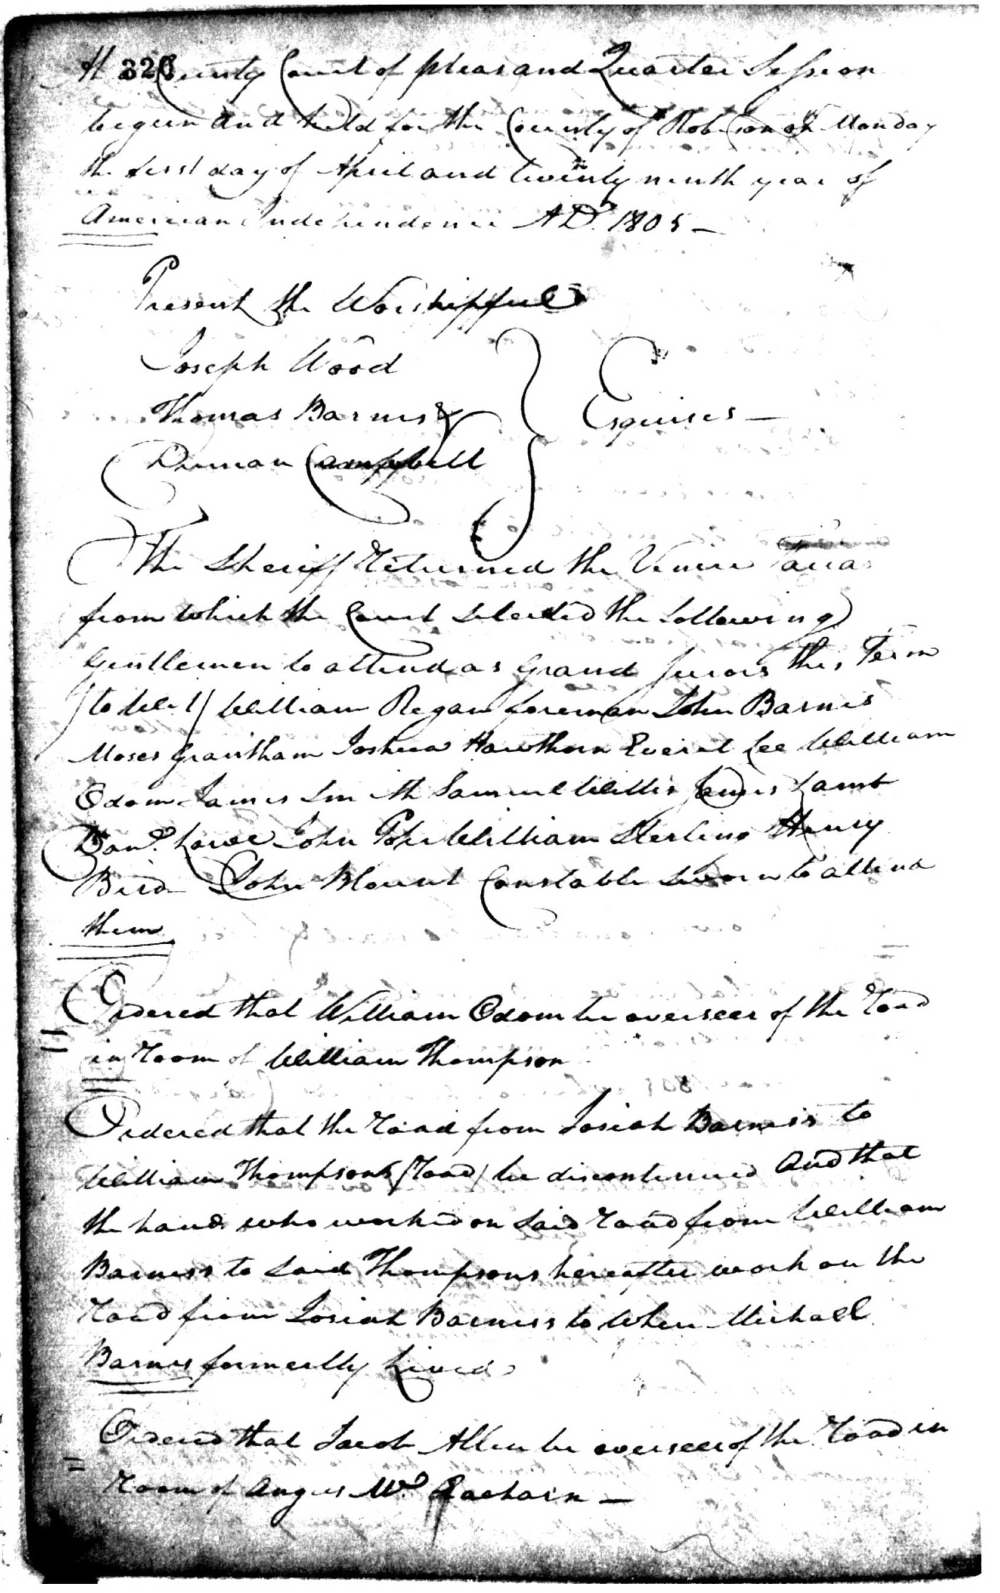 At 320 County Court of pleas and Quarter Session
begun and held for the County of Robeson on Monday
the first day of April and twenty ninth year of
American Independence AD. 1805 —
Present the Worshipfull
Joseph Wood
Thomas Barnes &
Duncan Campbell
Esquires —
The Sheriff Returned the Venire facias
from which the Court Selected the following
Gentlemen to attend as Grand Jurors this Term
(to Wit) William Regan foreman John Barnes
Moses Grantham Joshua Hawthorn Everet Lee William
Odom James Smith Samuel Willis James Lamb
Danl. Lowe John Pope William Sterling Henry
Bird John Blount Constable Sworn to attend
them
Ordered that William Odom be overseer of the Road
in Room of William Thompson
Ordered that the Road from Josiah Barness to
William Thompsons (Road) be discontinued And that
the hands who worked on Said Road from William
Barness to Said Thompsons hereafter work on the
Road from Josiah Barness to Where Michael
Barnes formerlly Lived
Ordered that Jacob Allen be overseer of the Road in
Room of Angus Mc Eachain —